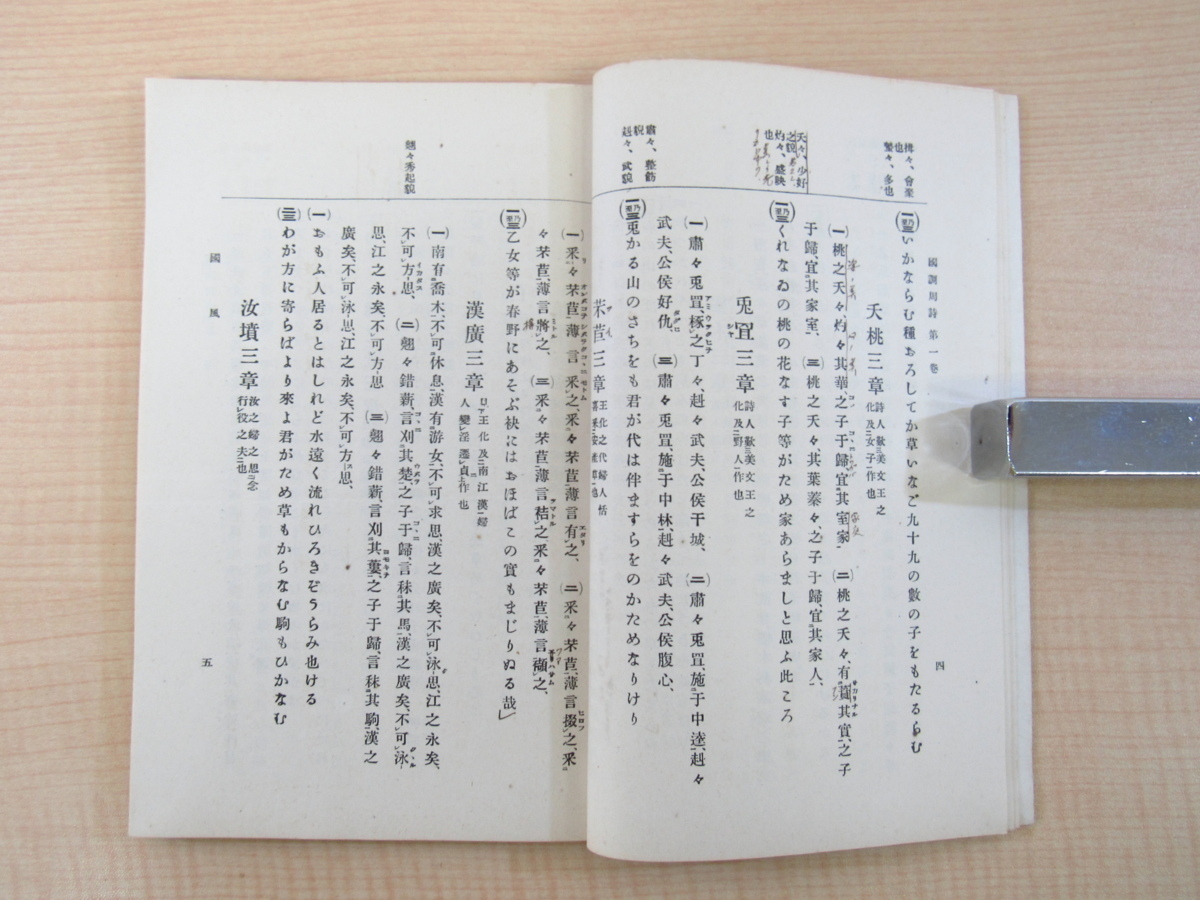 國訓周詩第一卷
四
揖々、會聚
也
蟄々、多也
いかならむ種おろしてか草いなど九十九の數の子をもたるらむ
夭桃三章
詩人歎美文王之
化及女子作也
夭々、少好
之貌
灼々、盛映
也
(一)桃之夭々、灼々其華、之子于歸、宜其室家、(二)桃之夭々、有蕡其實、之子
于歸、宜其家室、(三)桃之夭々、其葉蓁々、之子于歸、宜其家人、
くれなゐの桃の花なす子等がため家あらましと思ふ此ころ
兎罝三章
詩人歎美文王之
化及野人作也
肅々、整飭
貌
赳々、武貌
(一)肅々兎罝、椓之丁々、赳々武夫、公侯干城、(二)肅々兎罝、施于中逵、赳々
武夫、公侯好仇、(三)肅々兎罝、施于中林、赳々武夫、公侯腹心、
兎かる山のさちをも君が代は伴ますらをのかためなりけり
芣苢三章
王化之代婦人恬
(一)采々芣苢、薄言采之、采々芣苢、薄言有之、(二)采々芣苢、薄言掇之、采
々芣苢、薄言將之、(三)采々芣苢、薄言袺之、采々芣苢、薄言襭之、
乙女等が春野にあそぶ袂にはおほばこの實もまじりぬる哉」
漢廣三章
王化及南江漢婦
人變淫濫貞作也
翹々秀起貌
(一)南有喬木、不可休息、漢有游女、不可求思、漢之廣矣、不可泳思、江之永矣、
不可方思、(二)翹々錯薪、言刈其楚、之子于歸、言秣其馬、漢之廣矣、不可泳
思、江之永矣、不可方思(三)翹々錯薪、言刈其蔞、之子于歸、言秣其駒、漢之
廣矣、不可泳思、江之永矣、不可方思、
(一)おもふ人居るとはしれど水遠く流れひろきぞうらみ也ける
わが方に寄らばより來よ君がため草もからなむ駒もひかなむ
汝墳三章
汝之婦之思念
行役之夫也
國風
五